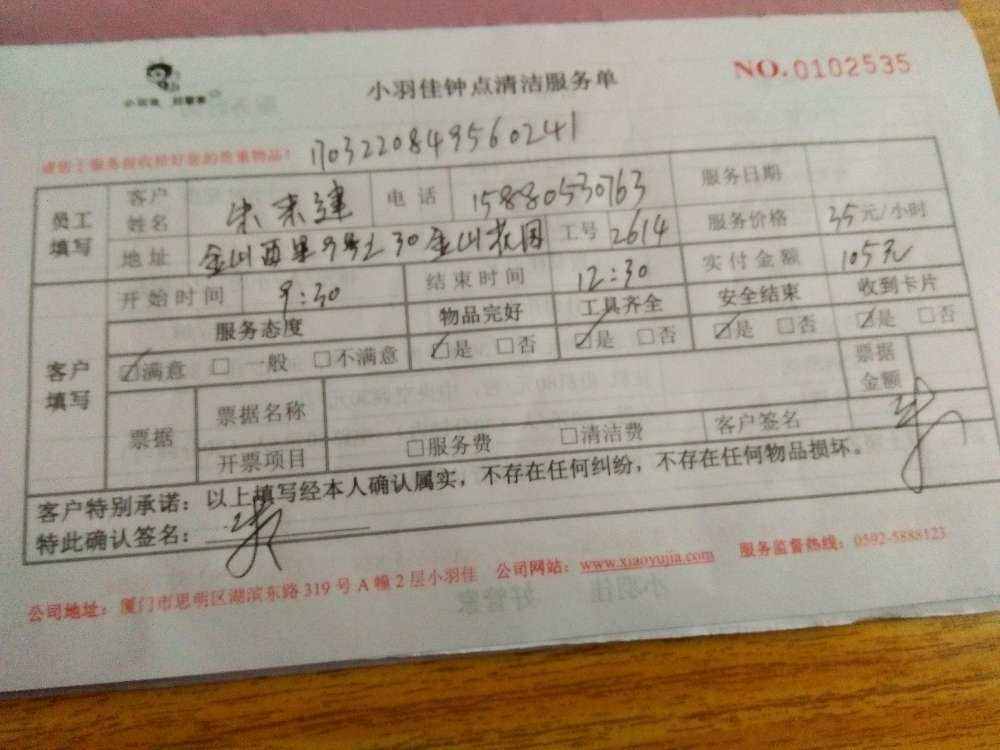 小羽佳 好管家
小羽佳钟点清洁服务单
NO.0102535
请您于服务前收拾好您的贵重物品！
1703220849560241
员工填写
客户姓名 朱来建 电话 15880530763 服务日期
地址 金山西里9号之30金山花园 工号 2614 服务价格 35元/小时
客户填写
开始时间 9:30 结束时间 12:30 实付金额 105元
服务态度 物品完好 工具齐全 安全结束 收到卡片
☑满意 □一般 □不满意 ☑是 □否 ☑是 □否 ☑是 □否 ☑是 □否
票据 票据名称 票据金额
开票项目 □服务费 □清洁费 客户签名
客户特别承诺：以上填写经本人确认属实，不存在任何纠纷，不存在任何物品损坏。
特此确认签名：
公司地址：厦门市思明区湖滨东路319号A幢2层小羽佳 公司网站：www.xiaoyujia.com 服务监督热线：0592-5888123